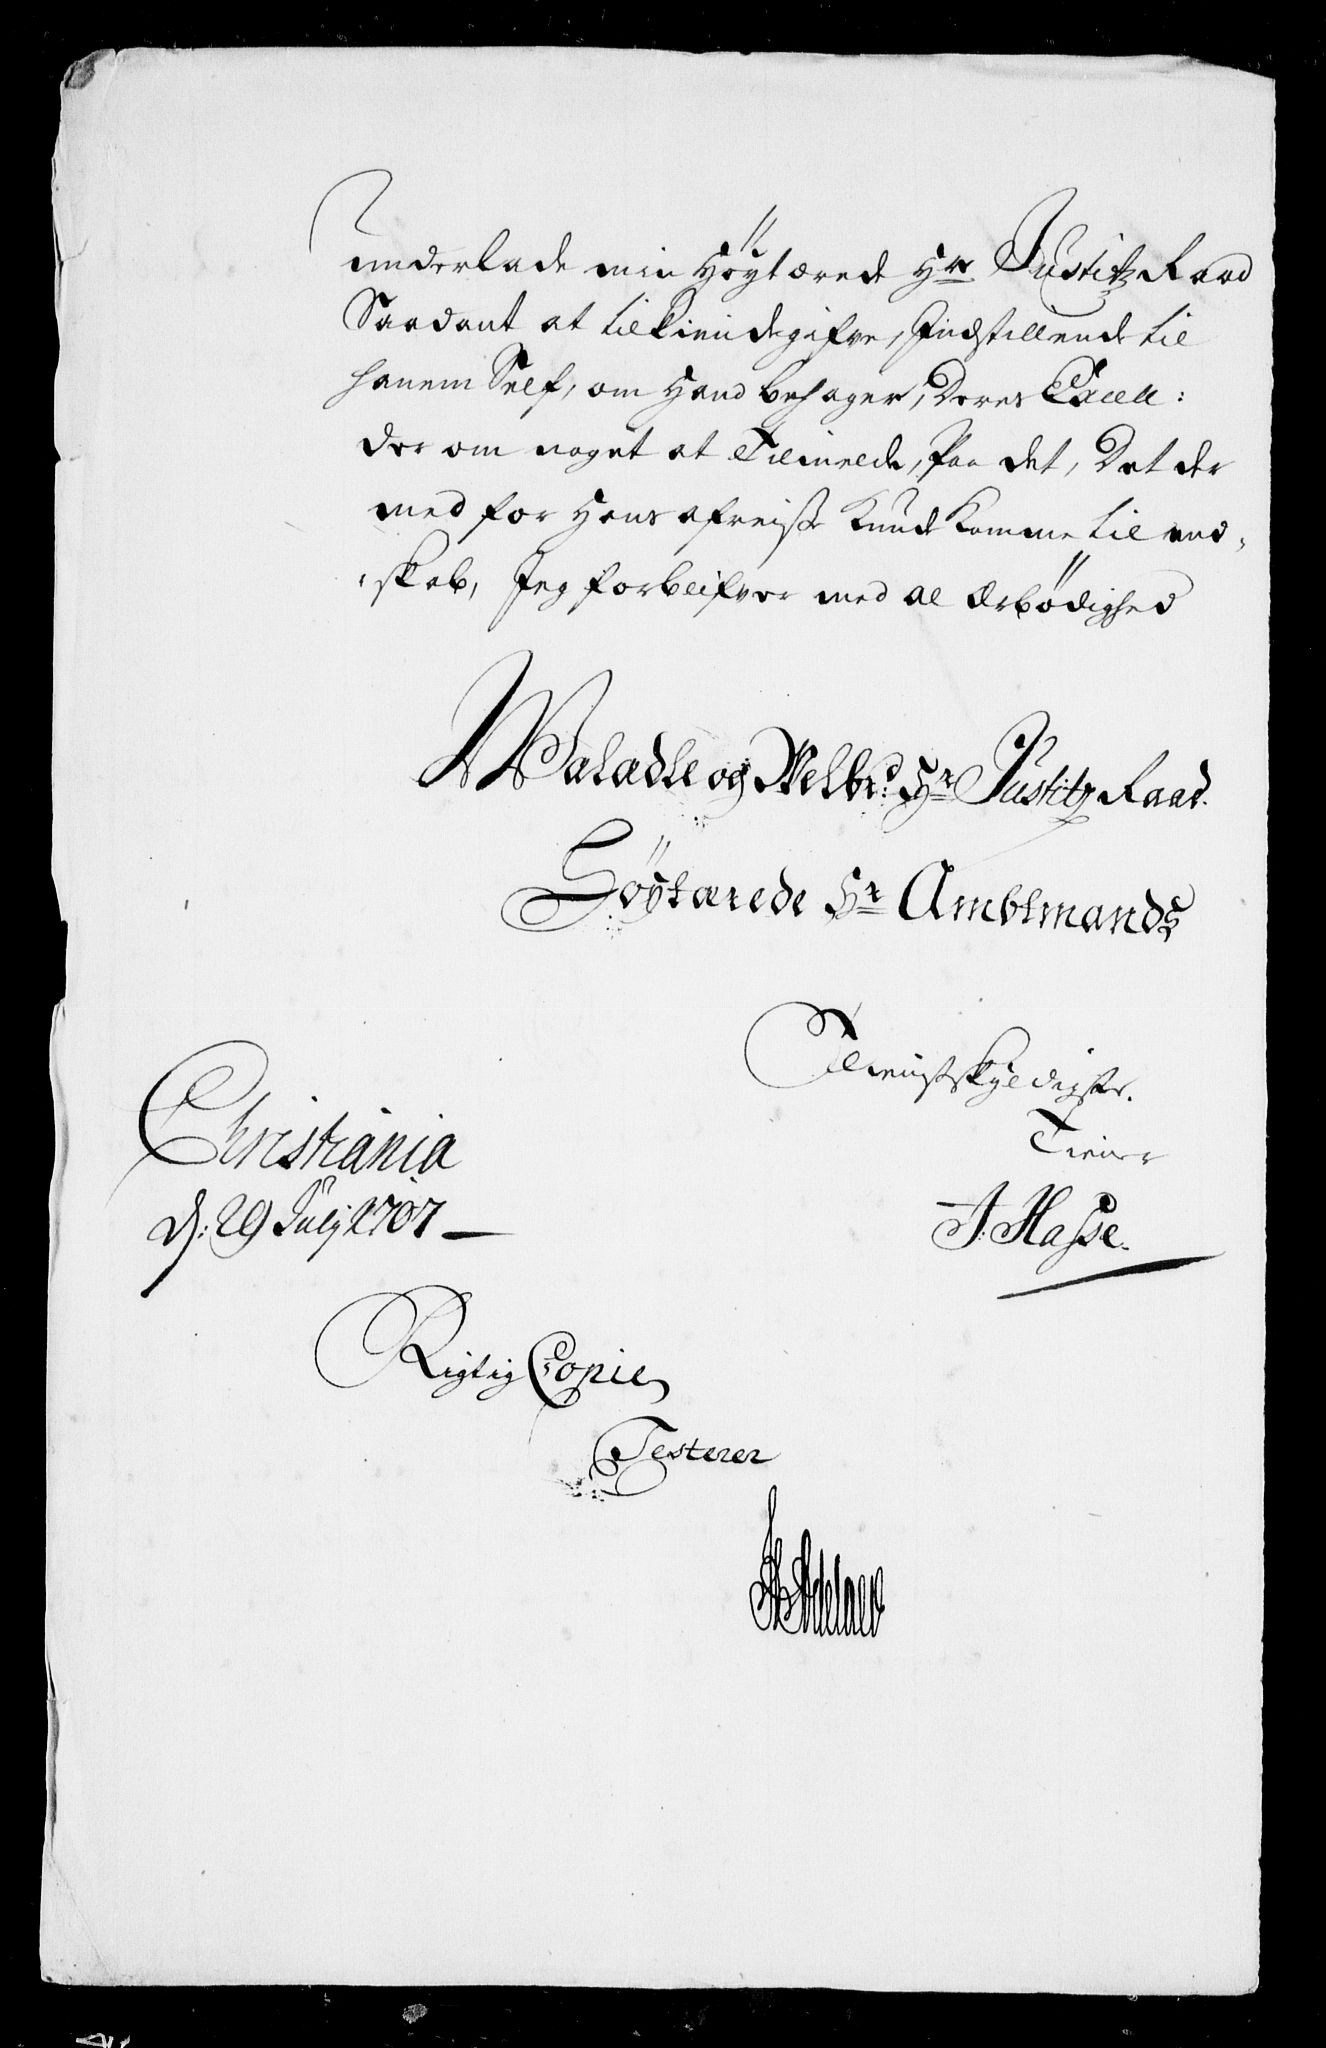 underlade min Høÿtærede Hr Justitz Raad
Saadant at tilkiendegifve, Indstillende til
hanem Self, om Hand behager, Deres Excell:
der om noget at Tilmelde, Paa det, Det der
med for Hans afreise kunde komme til end-
skab, Jeg forblifver med al Ærbödighed
Walædle og Velbr.d Hr Justitz Raad.
Höÿtærede Hr Ambtmands
Tienistskyldigste.
Tiener
Christiania
d: 29 Julij 1707
J: Hasse.
Rigtig Copie
Testerer
Adelaer